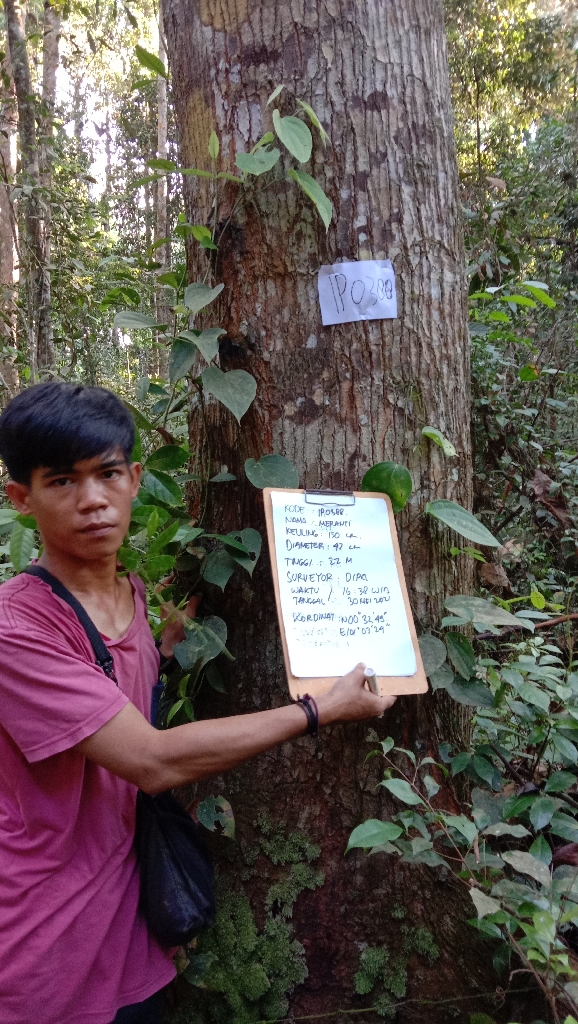 IP0388
KODE : IP0388
NAMA : MERANTI
KELILING : 130 cm
DIAMETER : 42 cm
TINGGI : 32 M
SURVEYOR : DIPA
WAKTU / 16:38 WIB
TANGGAL : 30 MEI 2021
KORDINAT : N00°32'49"